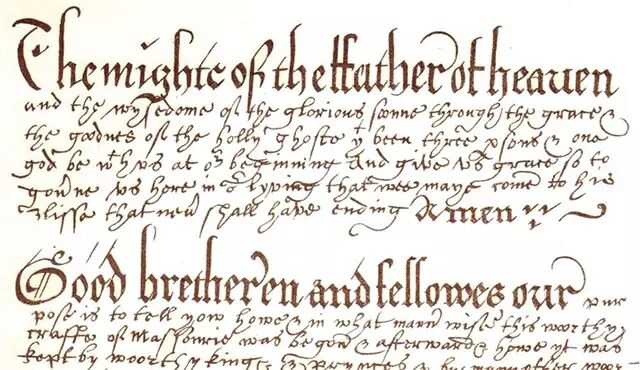 The mighte of the ffather of heaven
and the wysedome of the glorious sonne through the grace &
the goodnes of the holly ghoste yt been three psons & one
god be wth us at or beginning and give us grace so to
gouerne us here in or lyving that wee maye come to his
blisse that neur shall have ending Amen
Good bretheren and fellowes our pur
pose is to tell yow howe & in what manr wise this woorthy
crafte of Massonrie was begon & afterwards howe yt was
kept by woorthy kings & Prynces & by many other woor